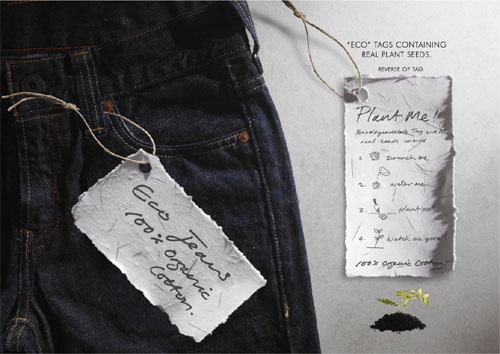 "ECO" TAGS CONTAINING
REAL PLANT SEEDS.
REVERSE OF TAG
Plant Me!
Biodegradable Tag with
real seeds
1. scrunch me
2. water me
3. plant me
4. watch me grow!
100% Organic Cotton.
Eco Jeans
100% Organic
Cotton.